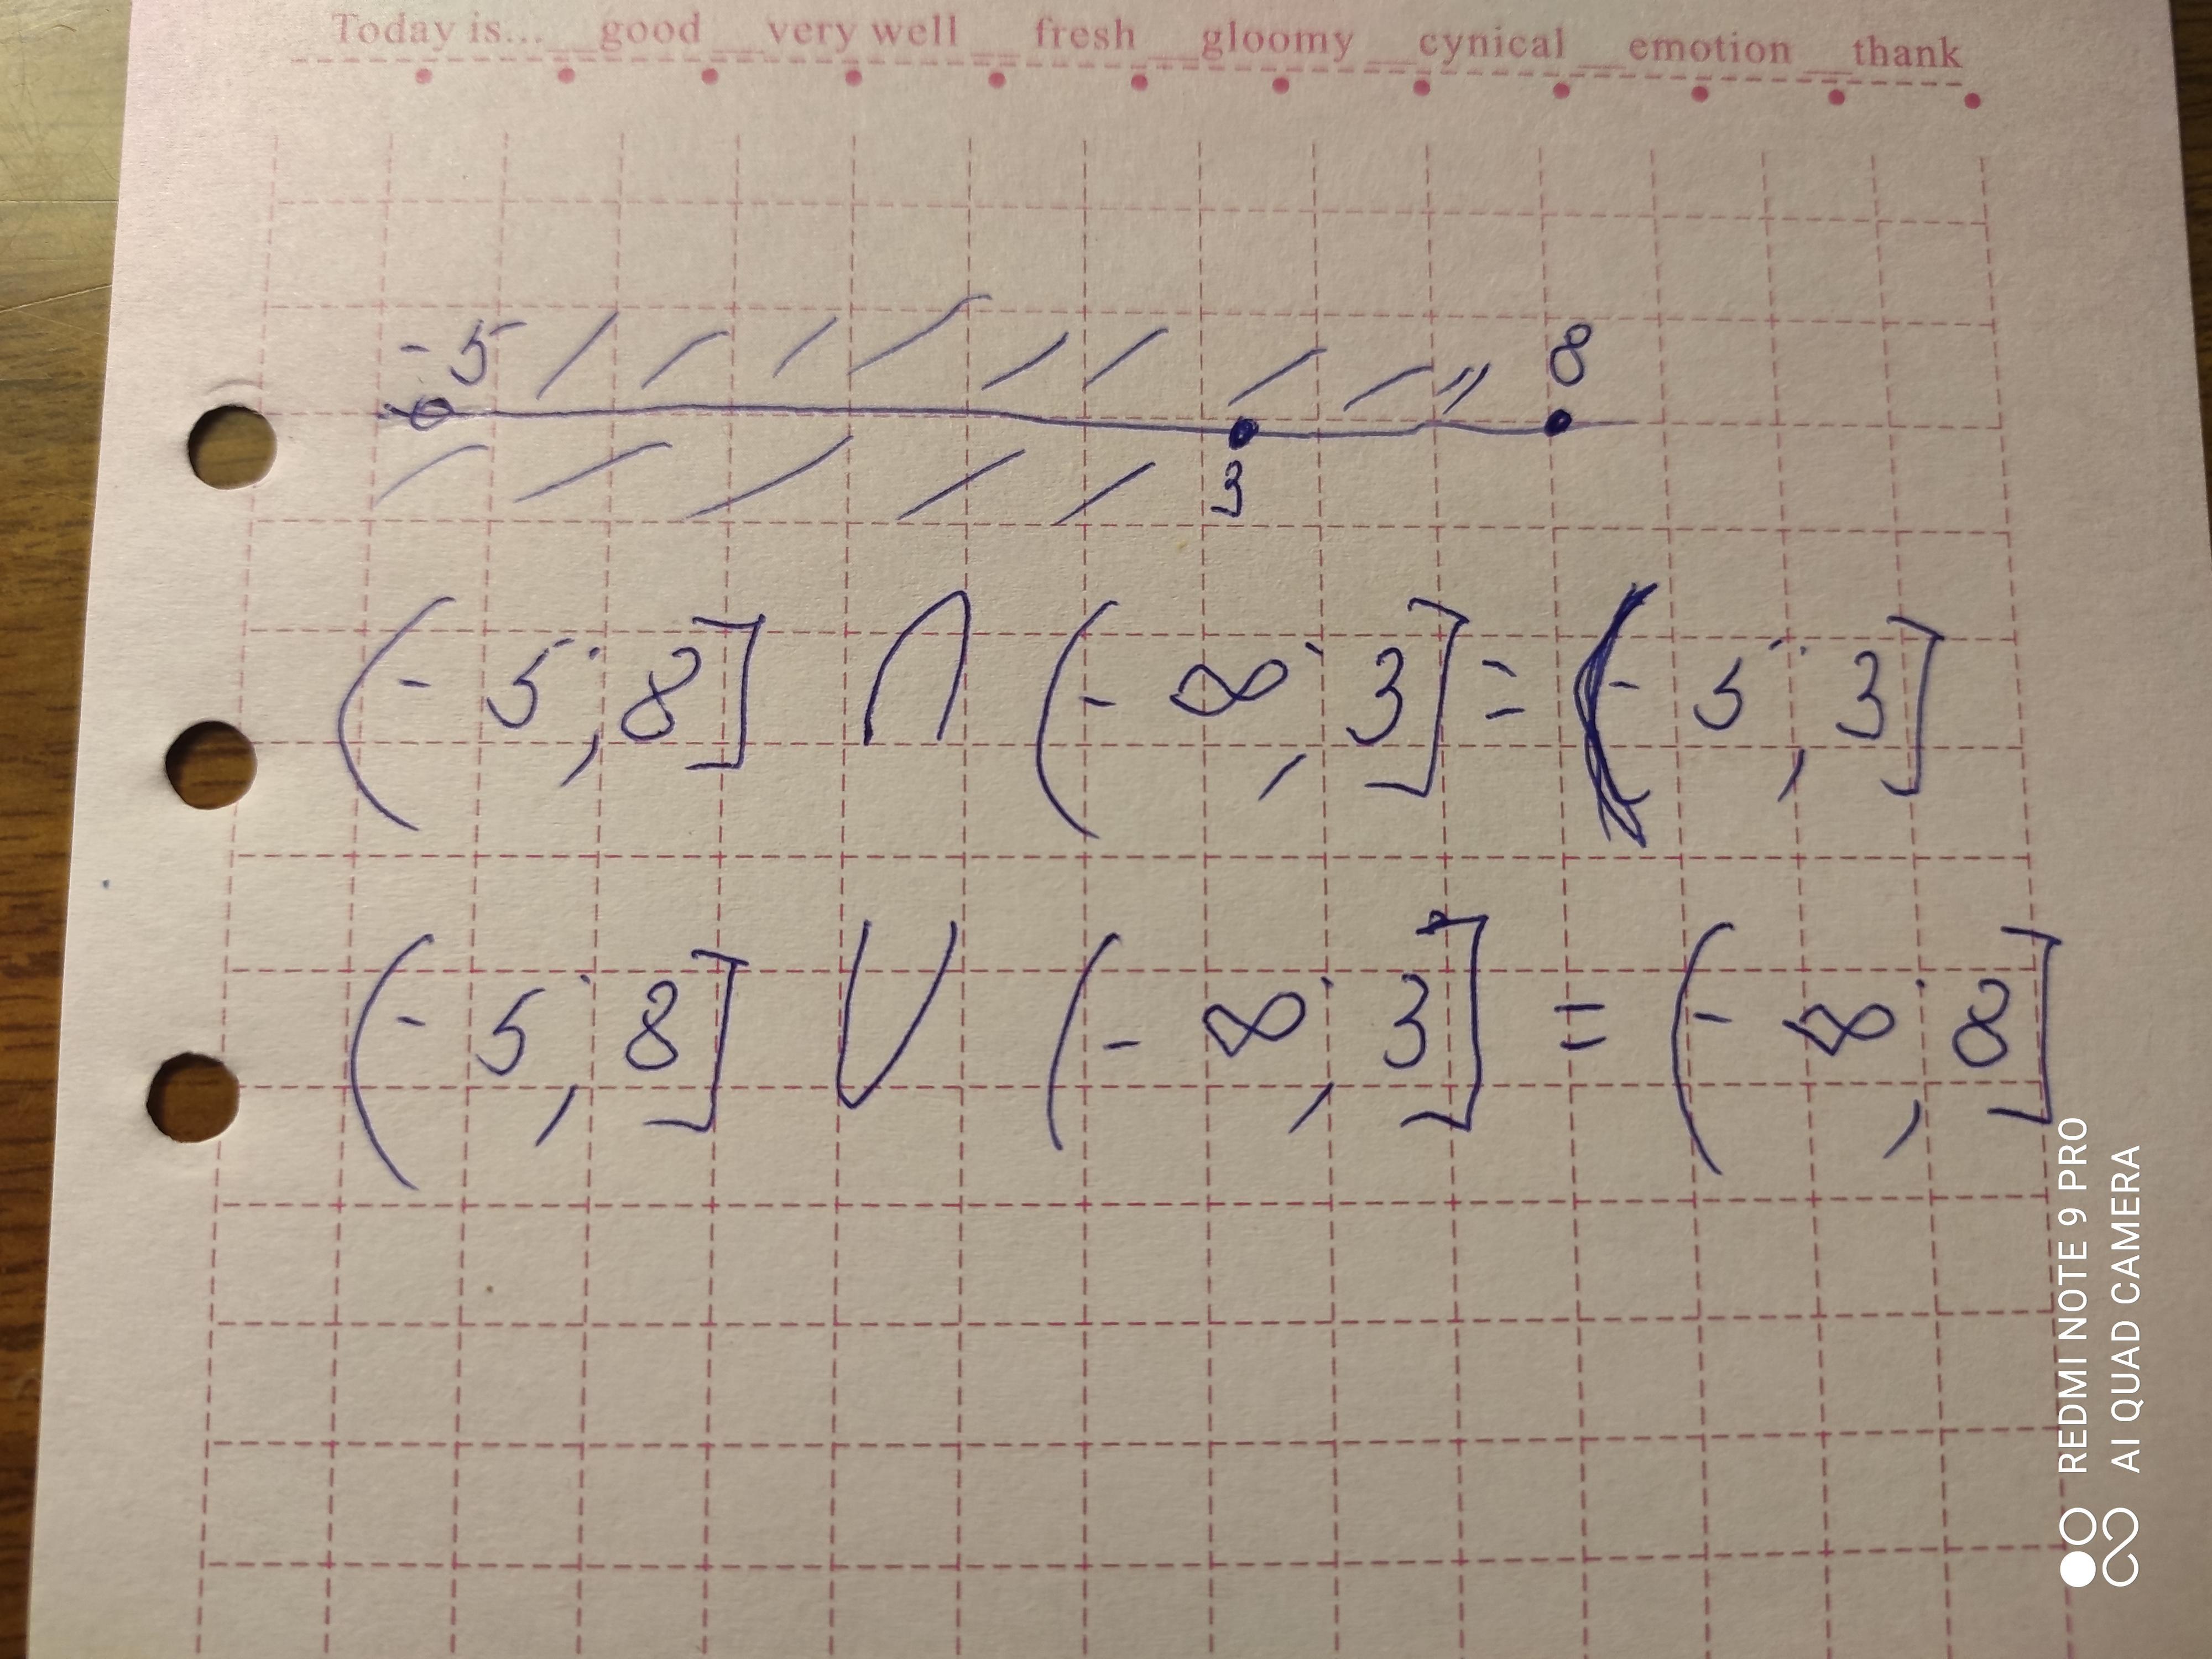 Today is... __good __very well __fresh __gloomy __cynical __emotion __thank
-5 8
3
(-5; 8] ∩ (-∞; 3] = (-5; 3]
(-5; 8] ∪ (-∞; 3] = (-∞; 8]
REDMI NOTE 9 PRO
AI QUAD CAMERA